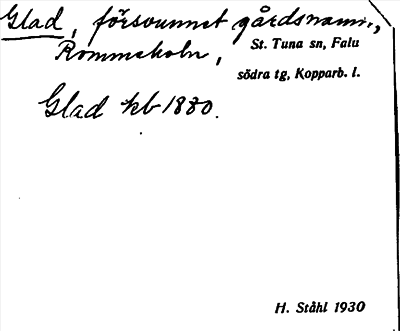 Glad, försvunnet gårdsnamn,
Rommeholn, St. Tuna sn, Falu
södra tg, Kopparb. l.
Glad kb 1880.
H. Ståhl 1930